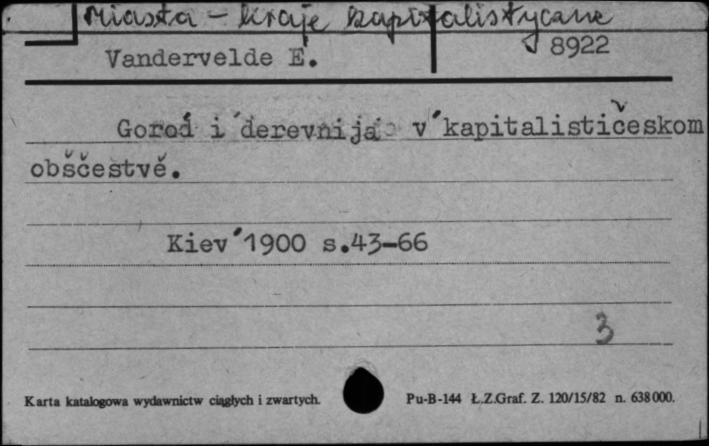 Miasta - kraje kapitalistyczne
Vandervelde E.
8922
Gorod i derevnija v kapitalističeskom
obščestvě.
Kiev 1900 s.43-66
3
Karta katalogowa wydawnictw ciągłych i zwartych.
Pu-B-144 Ł.Z.Graf. Z. 120/15/82 n. 638000.